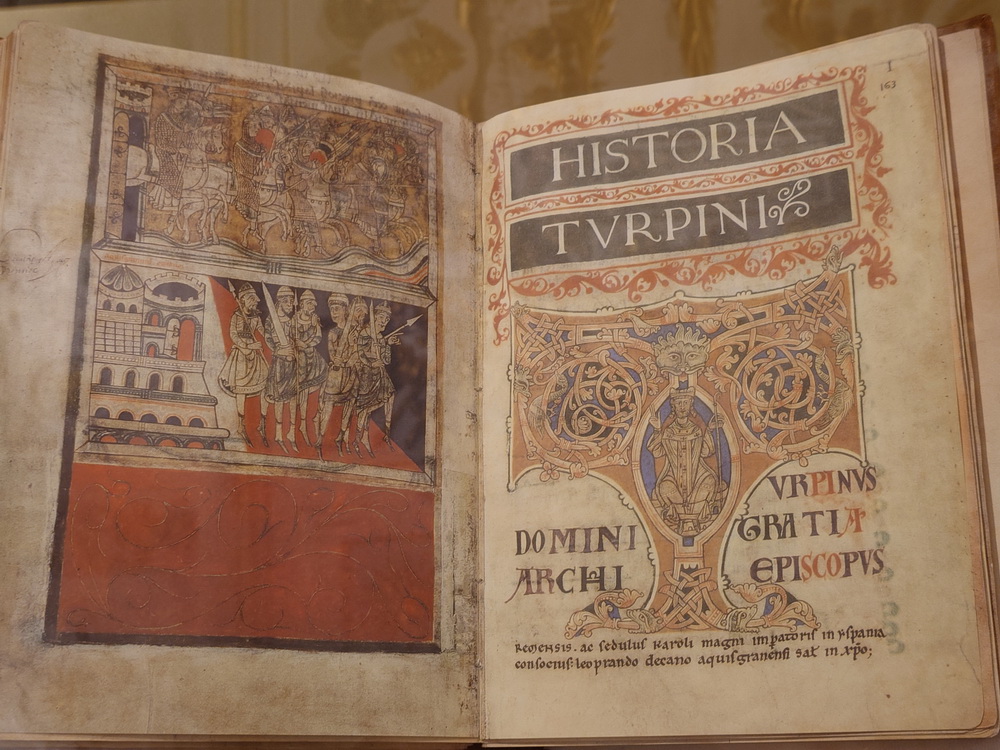 1
163
HISTORIA
TVRPINI
VRPINVS
DOMINI GRATIA
ARCHI EPISCOPVS
REMENSIS. ac sedulus karoli magni impatoris in yspania
consocius: leoprando decano aquisgranensi sał in xp̄o;